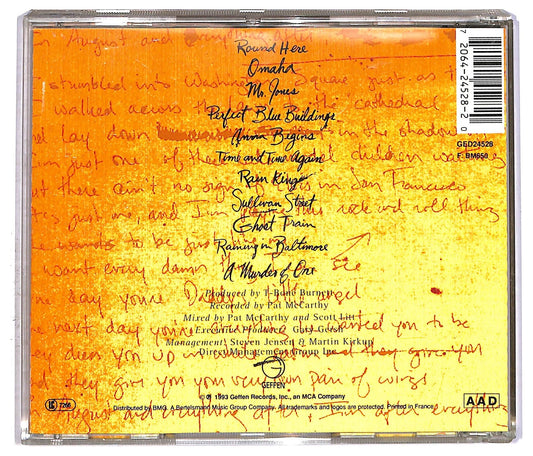 In August and everything after
Round Here
I stumbled into Washington Square just as
Omaha
Mr. Jones
walked across the cathedral
Perfect Blue Buildings
and lay down in the shadow
Anna Begins
I'm just one of these children
Time and Time Again
Rain King
but there ain't no sign of in San Francisco
Sullivan Street
just me, and I'm this rock and roll thing
Ghost Train
to be just
Raining in Baltimore
want every damn see
A Murder of One
one day you're Daddy's little angel
Produced by T-Bone Burnett
Recorded by Pat McCarthy
Mixed by Pat McCarthy and Scott Litt
next day you're wanted you to be
Executive Producer Gary Gersh
Management Steven Jensen & Martin Kirkup
they dress you up in give you
Direct Management Group Inc.
and they give you your very own pair of wings
G
GEFFEN
© ℗ 1993 Geffen Records, Inc., an MCA Company
Distributed by BMG. A Bertelsmann Music Group Company. All trademarks and logos are protected. Printed in France.
August and everything after, I'm after everything
7 20642 45282 0
GED24528
F: BM650
LC 7266
AAD